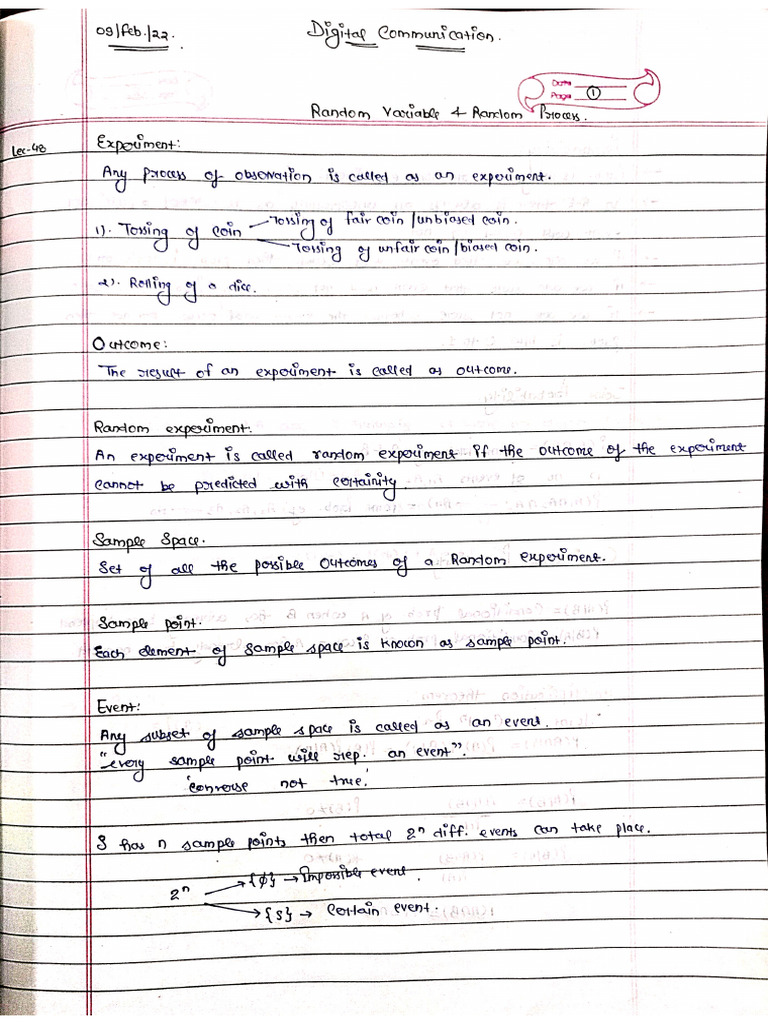 09/Feb./22.
Digital Communication.
Date
Page 1
Random Variable & Random Process.
Lec-48
Experiment:
Any process of observation is called as an experiment.
1). Tossing of coin
Tossing of fair coin/unbiased coin.
Tossing of unfair coin/biased coin.
2). Rolling of a dice.
Outcome:
The result of an experiment is called as outcome.
Random experiment.
An experiment is called random experiment if the outcome of the experiment
cannot be predicted with certainity.
Sample Space.
Set of all the possible outcomes of a Random experiment.
Sample point.
Each element of sample space is known as sample point.
Event:
Any subset of sample space is called as an event.
"every sample point will rep. an event".
'converse not true.'
S has n sample points then total 2ⁿ diff. events can take place.
2ⁿ
→{ϕ} → Impossible event.
→{S} → Certain event.